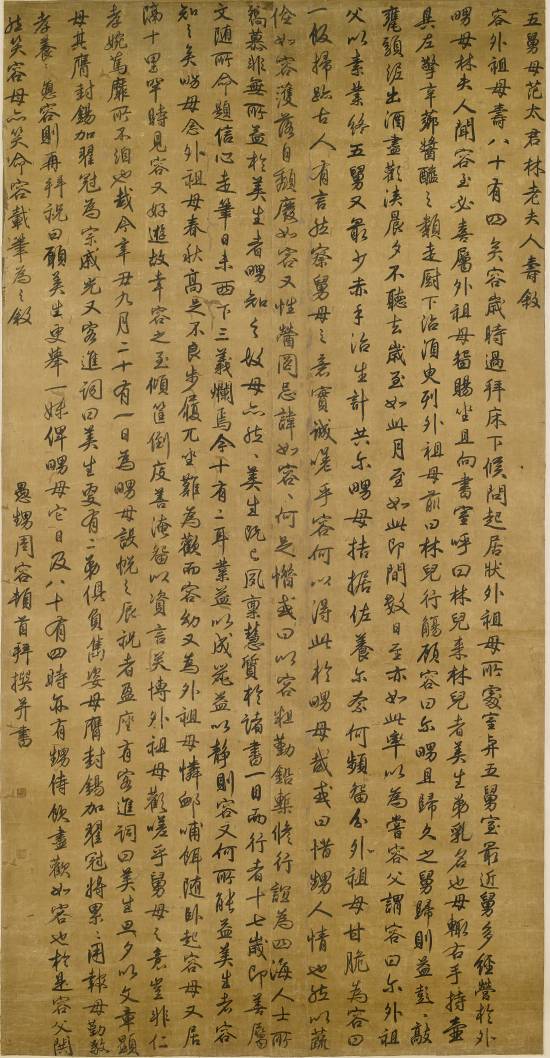 五舅母范太君林老夫人壽敘
容外祖母壽八十有四矣容歲時過拜床下候問起居狀外祖母所處室與五舅室最近舅多經營於外
舅母林夫人聞容至必喜屬外祖母留賜坐且向書室呼曰林兒來林兒者美生弟乳名也母輒右手持壺
具左擎辛薌醬醯之類走厨下治湏臾列外祖母前曰林兒行觴顧容曰尔舅且歸久之舅歸則益彭彭敲
甕頭經出酒盡歡浹晨夕不聽去歲至如此月至如此即間數日至亦如此率以為嘗容父謂容曰尔外祖
父以素業終五舅又最少赤手治生計共尔舅母拮据佐養尔奈何頻留分外祖母甘脆為容曰
一飯掃跡古人有言然察舅母之意實誠嗟乎容何以得此於舅母哉或曰惜甥人情也然以蔬
俭如容濩落自頽廢如容又性簡罔忌諱如容容何足惜或曰以容粗勤鉛槧修行誼為四海人士所
竊慕非無所益於美生者舅知之故母亦然然美生既已夙稟慧質於諸書一目兩行者十七歲即善屬
文隨所命題信心走筆日未西下三義爛焉今十有二耳業益以成氣益以靜則容又何所能益美生者容
知之矣舅母念外祖母春秋高足不良步履兀坐難為歡而容幼又為外祖母憐卹哺餌隨卧起容母又居
隔十里罕時見容又好遊故幸容之至傾筐倒庋善淹留以資言笑博外祖母歡嗟乎舅母之意豈非仁
孝婉篤靡所不洎也哉今辛丑九月二十有一日為舅母設帨之辰祝者盈座有客進詞曰美生旦夕以文章顯
母其膺封錫加翟冠為宗戚光又客進詞曰美生更有二弟俱負雋姿母膺封錫加翟冠將累累用報母勤教
孝養之意容則再拜祝曰願美生更舉一妹俾舅母它日及八十有四時亦有甥侍飲盡歡如容也於是容父閧
然笑容母亦笑命容載筆為之敘
愚甥周容頓首拜撰并書